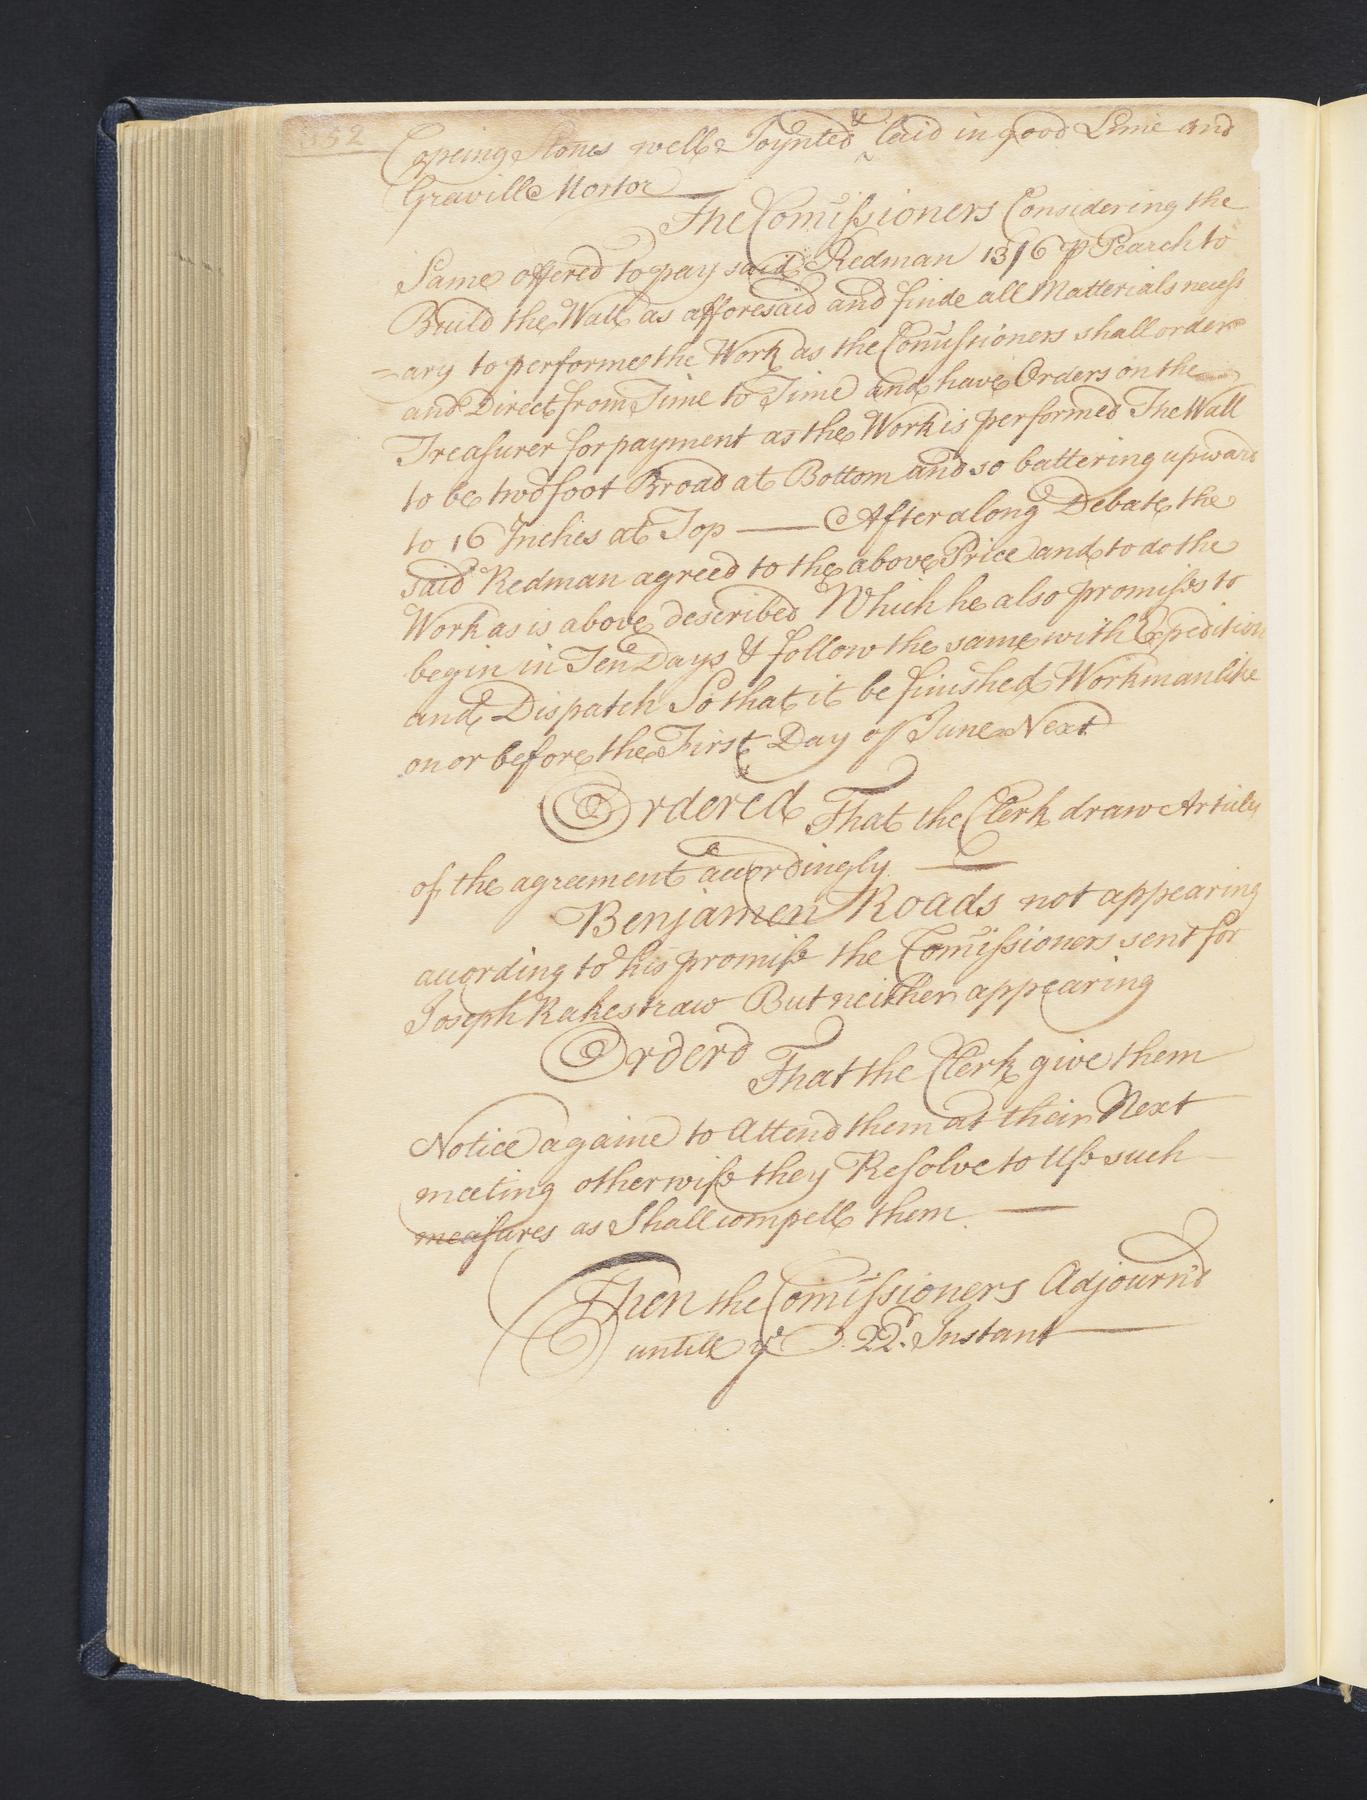 352
Copeing Stones well Joynted & laid in good Lime and
Graville Mortor
The Comissioners Considering the
Same offered to pay said Redman 13/6 ꝑ Pearch to
Build the Wall as afforesaid and finde all Matterials necess
=ary to performe the Work as the Comissioners shall order
and Direct from Time to Time and have Orders on the
Treasurer for payment as the Work is performed The Wall
to be two foot Broad at Bottom and so battering upward
to 16 Inches at Top — After a long Debate the
said Redman agreed to the above Price and to do the
Work as is above described Which he also promises to
begin in Ten Days & follow the same with Expedition
and Dispatch So that it be finished Workmanlike
on or before the First Day of June Next
Ordered That the Clerk draw Articles
of the agreement accordingly —
Benjamen Roads not appearing
according to his promise the Comissioners sent for
Joseph Rakestraw But neither appearing
Orderd That the Clerk give them
Notice againe to Attend them at their Next
meeting otherwise they Resolve to Use such
measures as Shall compell them —
Then the Comissioners Adjourn'd
untill yᵉ 22ᵈ. Instant —